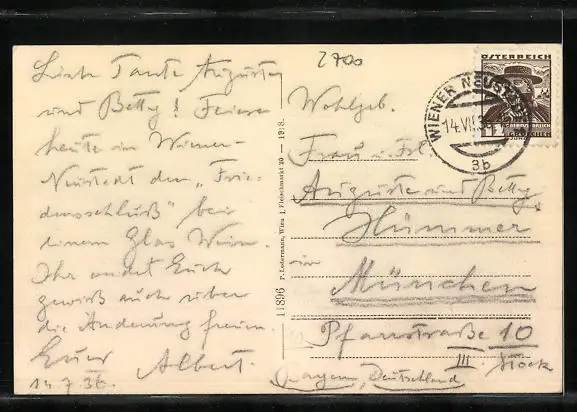 2700
Liebe Tante Auguste
und Betty! Feiere
heute in Wiener-
Neustadt den „Frie-
densschluß" bei
einem Glas Wein.
Ihr werdet Euch
gewiß auch über
die Änderung freuen.
Euer Albert.
14.7.36.
P. Ledermann, Wien I, Fleischmarkt 20 — 1918.
11896
ÖSTERREICH
WIENER NEUSTADT
14.VII.36
3b
Wohlgeb.
Frau u. Frl.
Auguste und Betty
Hümmer
in
München
Pfarrstraße 10
III. Stock
Bayern, Deutschland